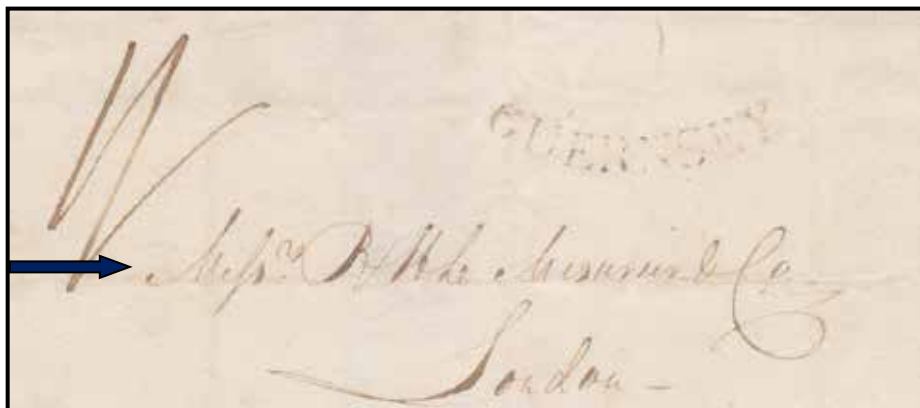 GUERNSEY
Messrs P & H Le Mesurier & Co
London –